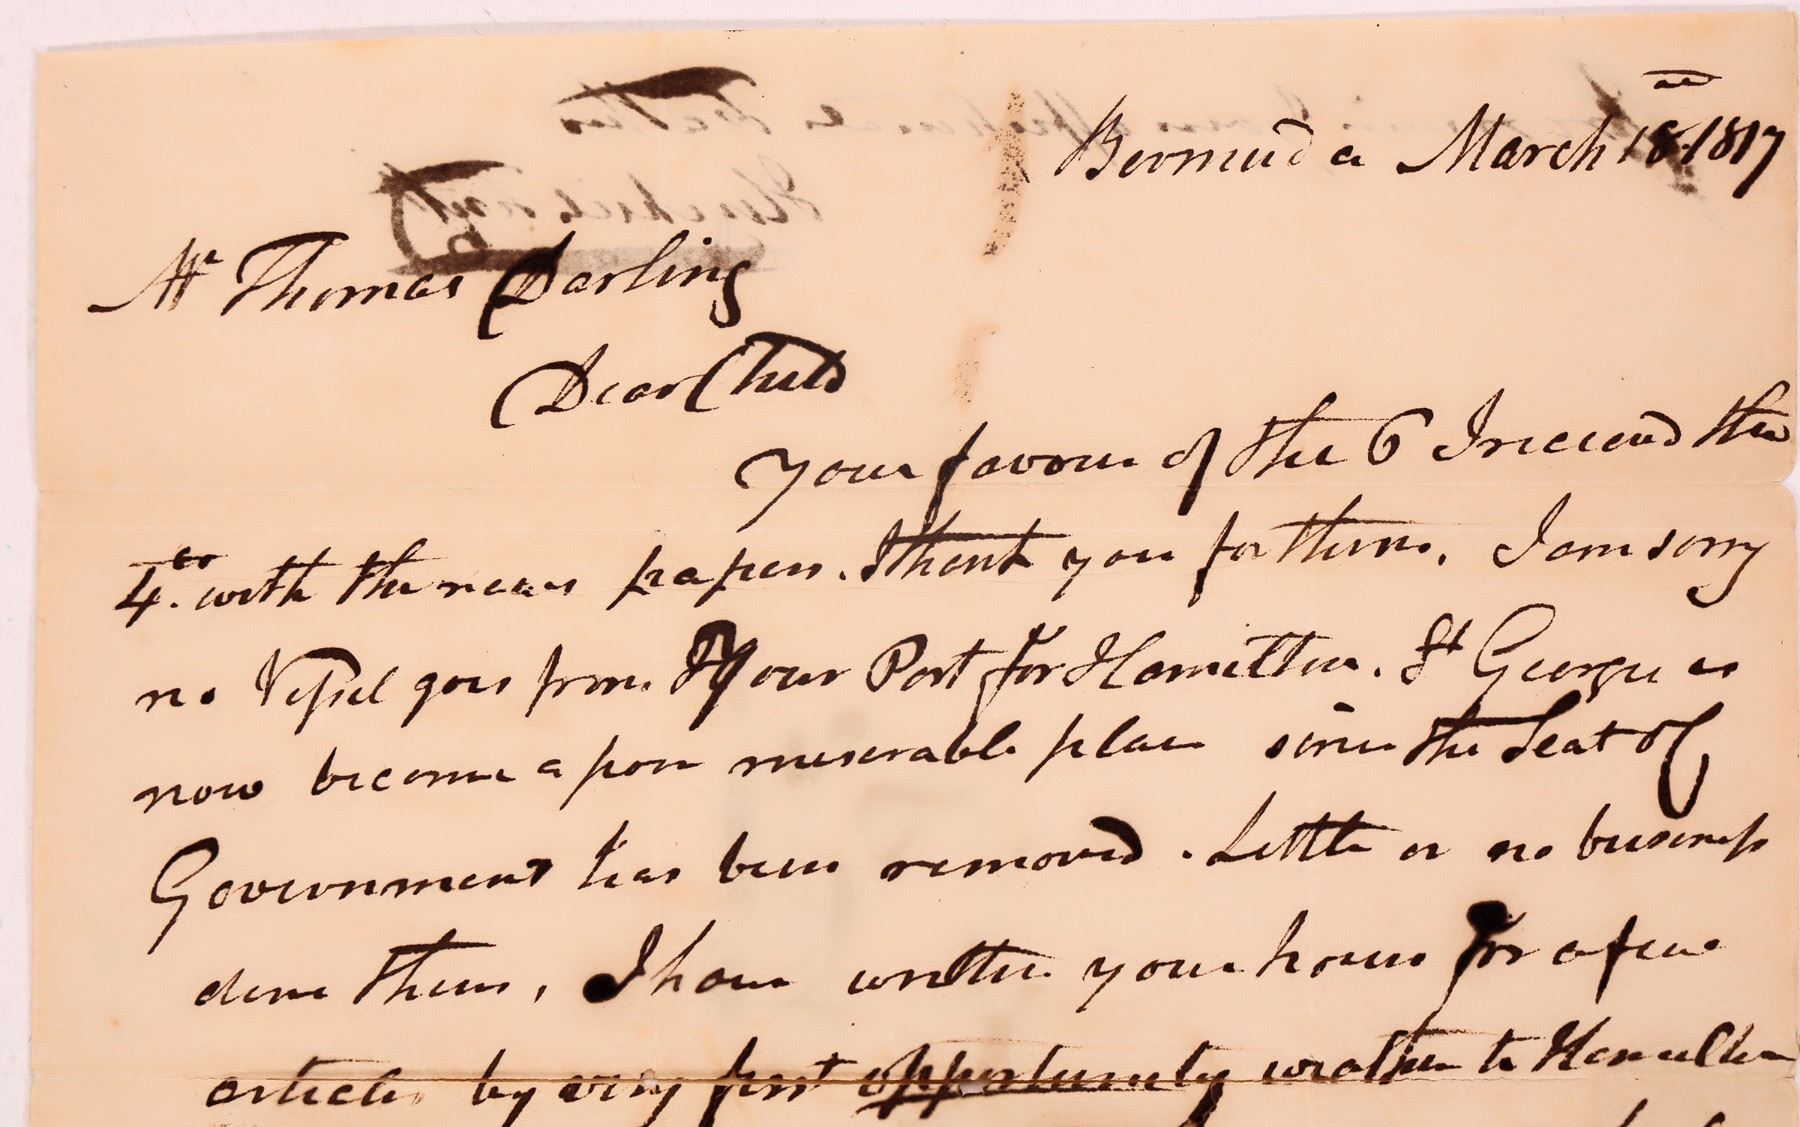 Bermuda March 18. 1817
Mr Thomas Darling
Dear Child
Your favour of the 6 I received the
4th. with the news papers. I thank you for them. I am sorry
no Vessel goes from Your Port for Hamilton. St George is
now become a poor miserable place since the Seat of
Government has been removed. Little or no business
done there, I have written your house for a few
articles by very first opportunity to Hamilton